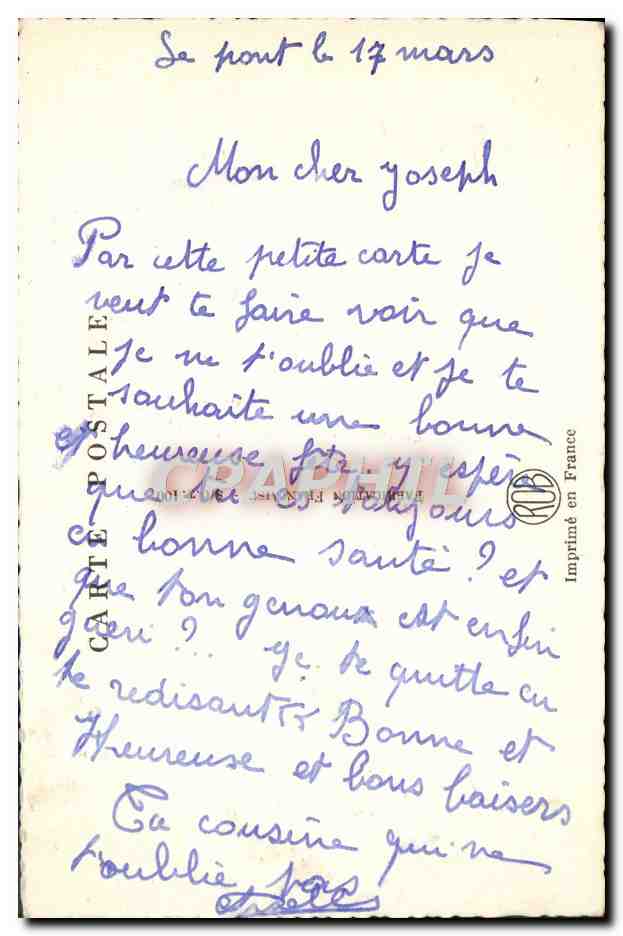 Le pont le 17 mars
Mon cher Joseph
Par cette petite carte je
veut te faire voir que
je ne t'oublie et je te
souhaite une bonne
et heureuse fête. j'espère
que tu es toujours
en bonne santé? et
que ton genoux est enfin
guéri?... Je te quitte en
te redisant Bonne et
Heureuse et bons baisers
Ta cousine qui ne
t'oublie pas
CARTE POSTALE
FABRICATION FRANÇAISE
CRAPHIL
ROB
Imprimé en France